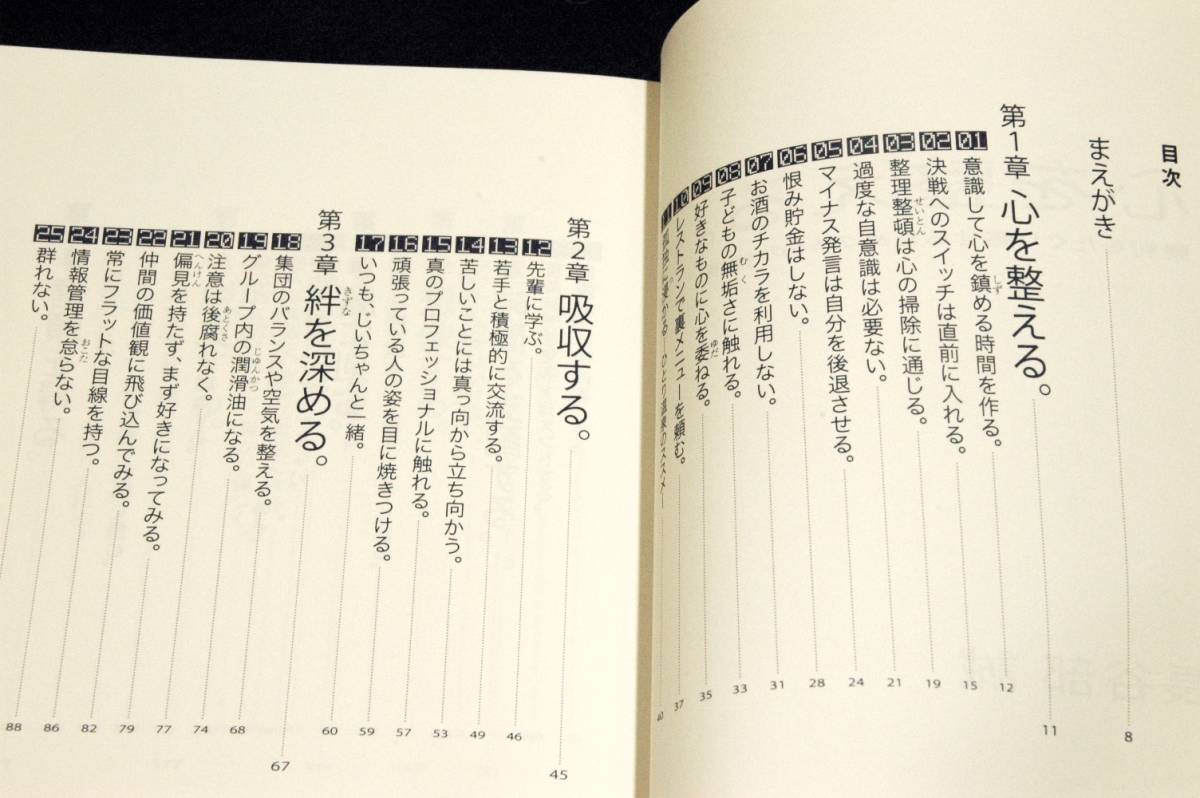 目次
まえがき 8
第1章 心を整える。 11
しず
01 意識して心を鎮める時間を作る。 12
02 決戦へのスイッチは直前に入れる。 15
せいとん
03 整理整頓は心の掃除に通じる。 19
04 過度な自意識は必要ない。 21
05 マイナス発言は自分を後退させる。 24
06 恨み貯金はしない。 28
07 お酒のチカラを利用しない。 31
むく
08 子どもの無垢さに触れる。 33
ゆだ
09 好きなものに心を委ねる。 35
10 レストランで裏メニューを頼む。 37
11 孤独に浸かる ーひとり温泉のススメー 40
第2章 吸収する。 45
12 先輩に学ぶ。 46
13 若手と積極的に交流する。 49
14 苦しいことには真っ向から立ち向かう。 53
15 真のプロフェッショナルに触れる。 57
16 頑張っている人の姿を目に焼きつける。 59
17 いつも、じいちゃんと一緒。 60
きずな
第3章 絆を深める。 67
18 集団のバランスや空気を整える。 68
じゅんかつ
19 グループ内の潤滑油になる。 74
あとくさ
20 注意は後腐れなく。 77
へんけん
21 偏見を持たず、まず好きになってみる。 79
22 仲間の価値観に飛び込んでみる。 82
23 常にフラットな目線を持つ。 86
おこた
24 情報管理を怠らない。 88
25 群れない。